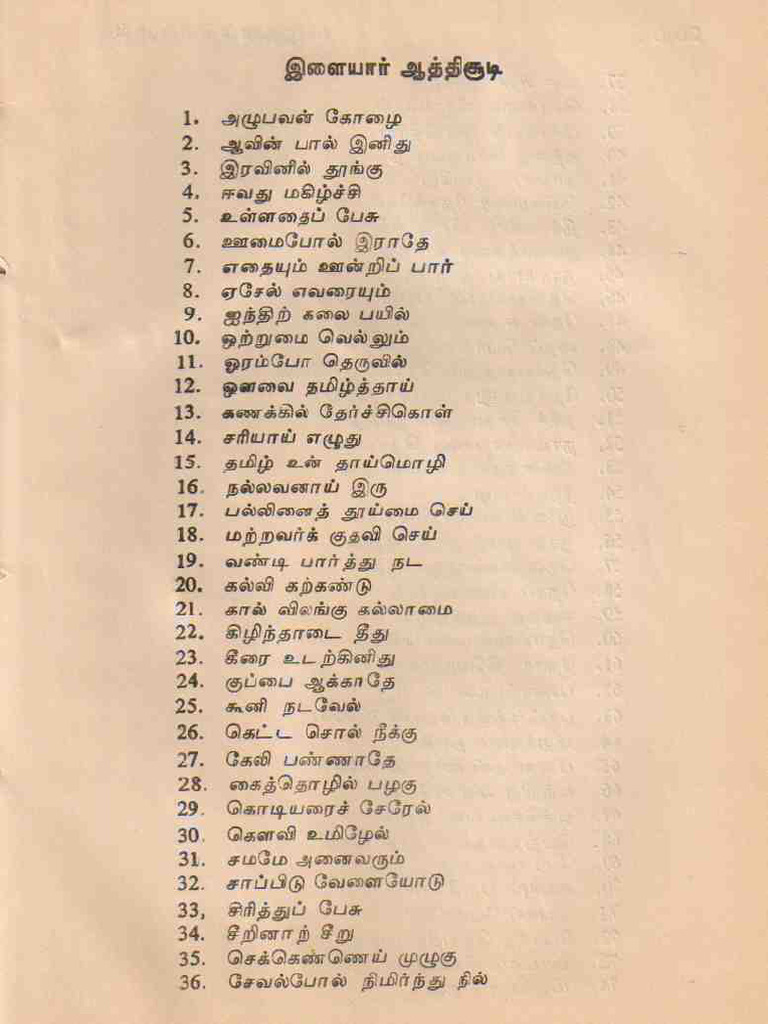 இளையார் ஆத்திசூடி
1. அழுபவன் கோழை
2. ஆவின் பால் இனிது
3. இரவினில் தூங்கு
4. ஈவது மகிழ்ச்சி
5. உள்ளதைப் பேசு
6. ஊமைபோல் இராதே
7. எதையும் ஊன்றிப் பார்
8. ஏசேல் எவரையும்
9. ஐந்திற் கலை பயில்
10. ஒற்றுமை வெல்லும்
11. ஓரம்போ தெருவில்
12. ஔவை தமிழ்த்தாய்
13. கணக்கில் தேர்ச்சிகொள்
14. சரியாய் எழுது
15. தமிழ் உன் தாய்மொழி
16. நல்லவனாய் இரு
17. பல்லினைத் தூய்மை செய்
18. மற்றவர்க் குதவி செய்
19. வண்டி பார்த்து நட
20. கல்வி கற்கண்டு
21. கால் விலங்கு கல்லாமை
22. கிழிந்தாடை தீது
23. கீரை உடற்கினிது
24. குப்பை ஆக்காதே
25. கூனி நடவேல்
26. கெட்ட சொல் நீக்கு
27. கேலி பண்ணாதே
28. கைத்தொழில் பழகு
29. கொடியரைச் சேரேல்
30. கௌவி உமிழேல்
31. சமமே அனைவரும்
32. சாப்பிடு வேளையோடு
33, சிரித்துப் பேசு
34. சீறினாற் சீறு
35. செக்கெண்ணெய் முழுகு
36. சேவல்போல் நிமிர்ந்து நில்